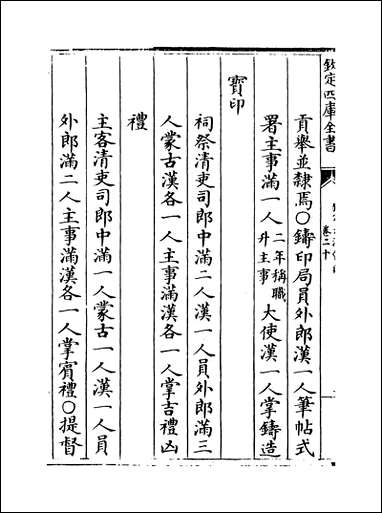 欽定四庫全書
卷二十
貢舉並隸焉○鑄印局員外郎漢一人筆帖式
署主事滿一人二年稱職升主事大使漢一人掌鑄造
寶印
祠祭清吏司郎中滿二人漢一人員外郎滿三
人蒙古漢各一人主事滿漢各一人掌吉禮凶
禮
主客清吏司郎中滿一人蒙古一人漢一人員
外郎滿二人主事滿漢各一人掌賓禮○提督